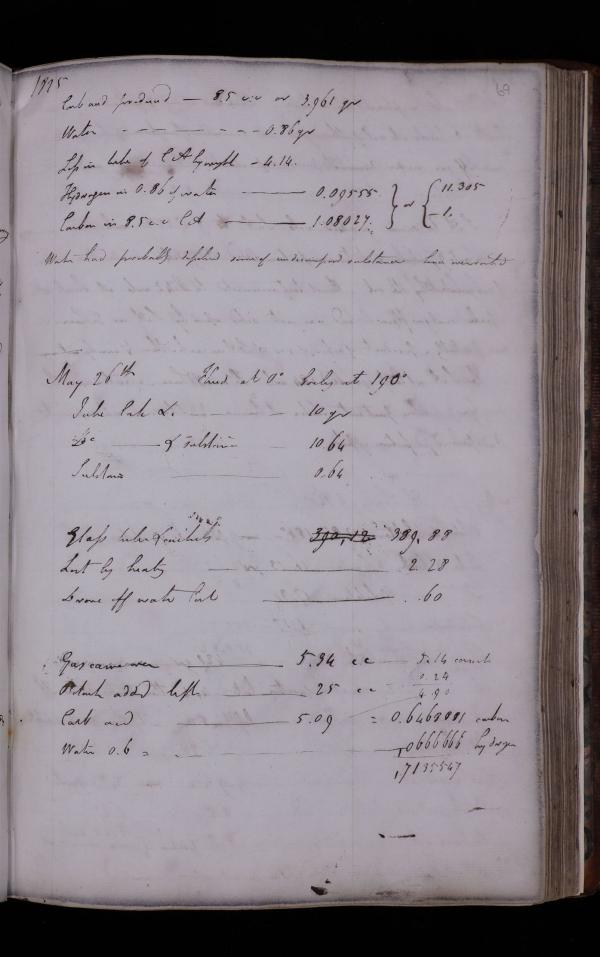 1825
69
Carb acid produced — 8.5 c.i or 3.961 gr
Water - - - - 0.86 gr
Loss in tube of by weight - 4.14.
Hydrogen in 0.86 of water —— 0.09555 } or { 11.305
Carbon in 8.5 c.i C A —— 1.08027 1.
Water had probably some of undecomposed substance
May 26th Fluid at 0° boils at 190°
Tube - 10. gr
Do —— & substance - 10.64
Substance —— 0.64
Glass tube 390,12 389,88
Lost by heating —— 2.28
Drove off water lost —— .60
Gas came over —— 5.34 c.i — 5.14
0.24
4.90
Potash added left —— 25 c.i
Carb acid —— 5.09 = 0.6468001 carbon
Water 0.6 = - - - ,0666666 hydrogen
,7135547